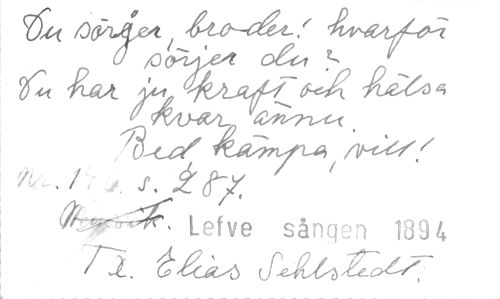 Du sörger, broder! hvarför
sörjer du?
Du har ju kraft och hälsa
kvar ännu.
Bed, kämpa, vill!
Nr. 176. s. 287.
Lefve sången 1894
Tx. Elias Sehlstedt.